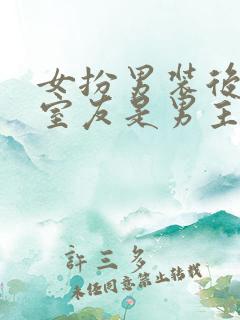 女扮男装後
室友是男主
許三多
未经同意禁止转载